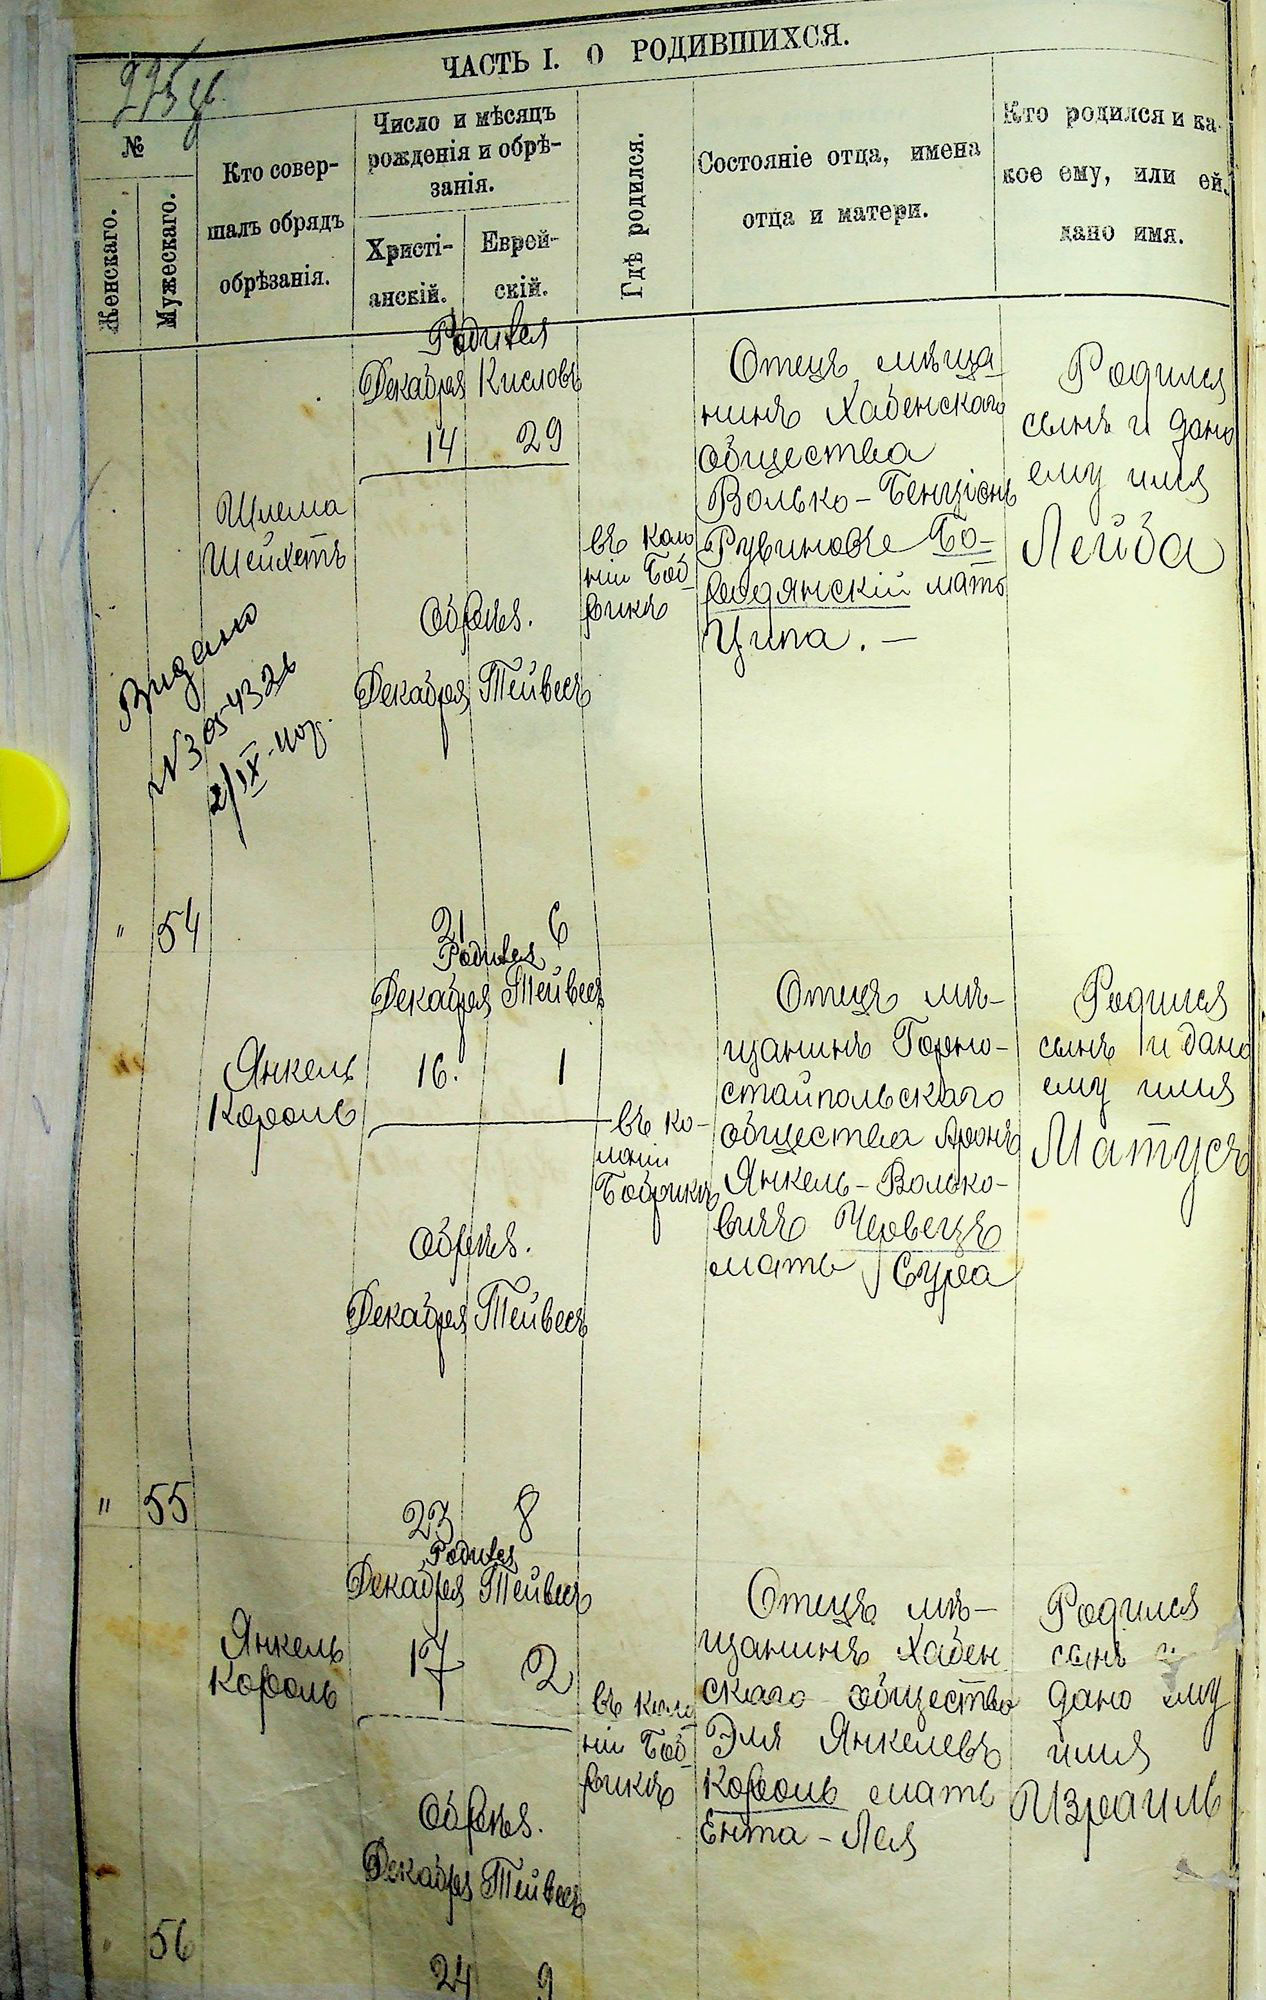 ЧАСТЬ I. О РОДИВШИХСЯ.
№
Женскаго.
Мужескаго.
Кто совер-
шалъ обрядъ
обрѣзанія.
Число и мѣсяцъ
рожденія и обрѣ-
занія.
Христі-
анскій.
Еврей-
скій.
Гдѣ родился.
Состояніе отца, имена
отца и матери.
Кто родился и ка-
кое ему, или ей,
дано имя.
Шлема
Шейхетъ
Видано
2/IX
Родился
Декабря Кисловъ
14 29
Обрѣз.
Декабря Тейвесъ
21 6
въ коло
ніи Боб-
рикъ
Отецъ мѣща
нинъ Хабенскаго
общества
Волько-Бенціонъ
Рувиновъ Бо-
родянскій мать
Ципа. —
Родился
сынъ и дано
ему имя
Лейба
" 54
Янкель
Король
Родился
Декабря Тейвесъ
16. 1
Обрѣз.
Декабря Тейвесъ
23 8
въ ко-
лоніи
Бобрикъ
Отецъ мѣ-
щанинъ Горно-
стайпольскаго
общества Аронъ
Янкель-Волько-
вичъ Червецъ
мать Сура
Родился
сынъ и дано
ему имя
Матусъ
" 55
Янкель
Король
Родился
Декабря Тейвесъ
17 2
Обрѣз.
Декабря Тейвесъ
24 9
въ коло
ніи Боб-
рикъ
Отецъ мѣ-
щанинъ Хабен
скаго общества
Эля Янкелевъ
Король мать
Ента-Лея
Родился
сынъ и
дано ему
имя
Израиль
56